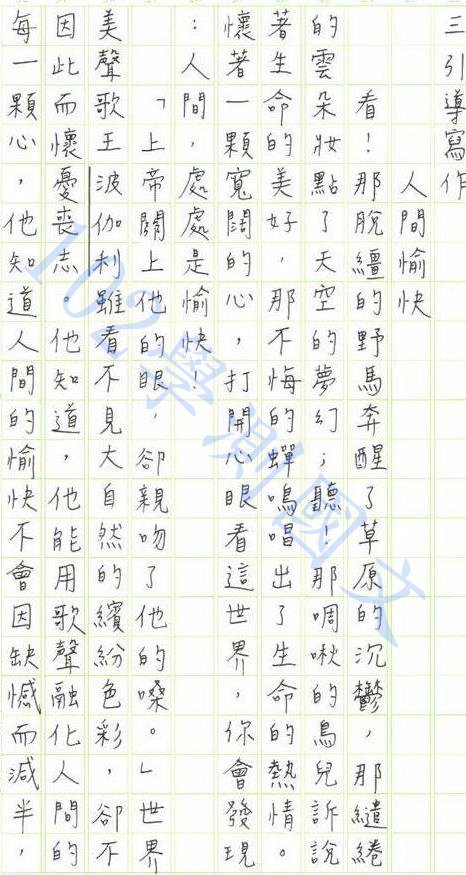 三引導寫作
人間愉快
看！那脫繮的野馬奔醒了草原的沉鬱，那繾綣
的雲朵妝點了天空的夢幻；聽！那啁啾的鳥兒訴說
著生命的美好，那不悔的蟬鳴唱出了生命的熱情。
懷著一顆寬闊的心，打開心眼看這世界，你會發現
：人間，處處是愉快！
「上帝關上他的眼，卻親吻了他的嗓。」世界
美聲歌王波伽利雖看不見，大自然的繽紛色彩，卻不
因此而懷憂喪志。他知道，他能用歌聲融化人間的
每一顆心，他知道人間的愉快不會因缺憾而減半，
102學測國文